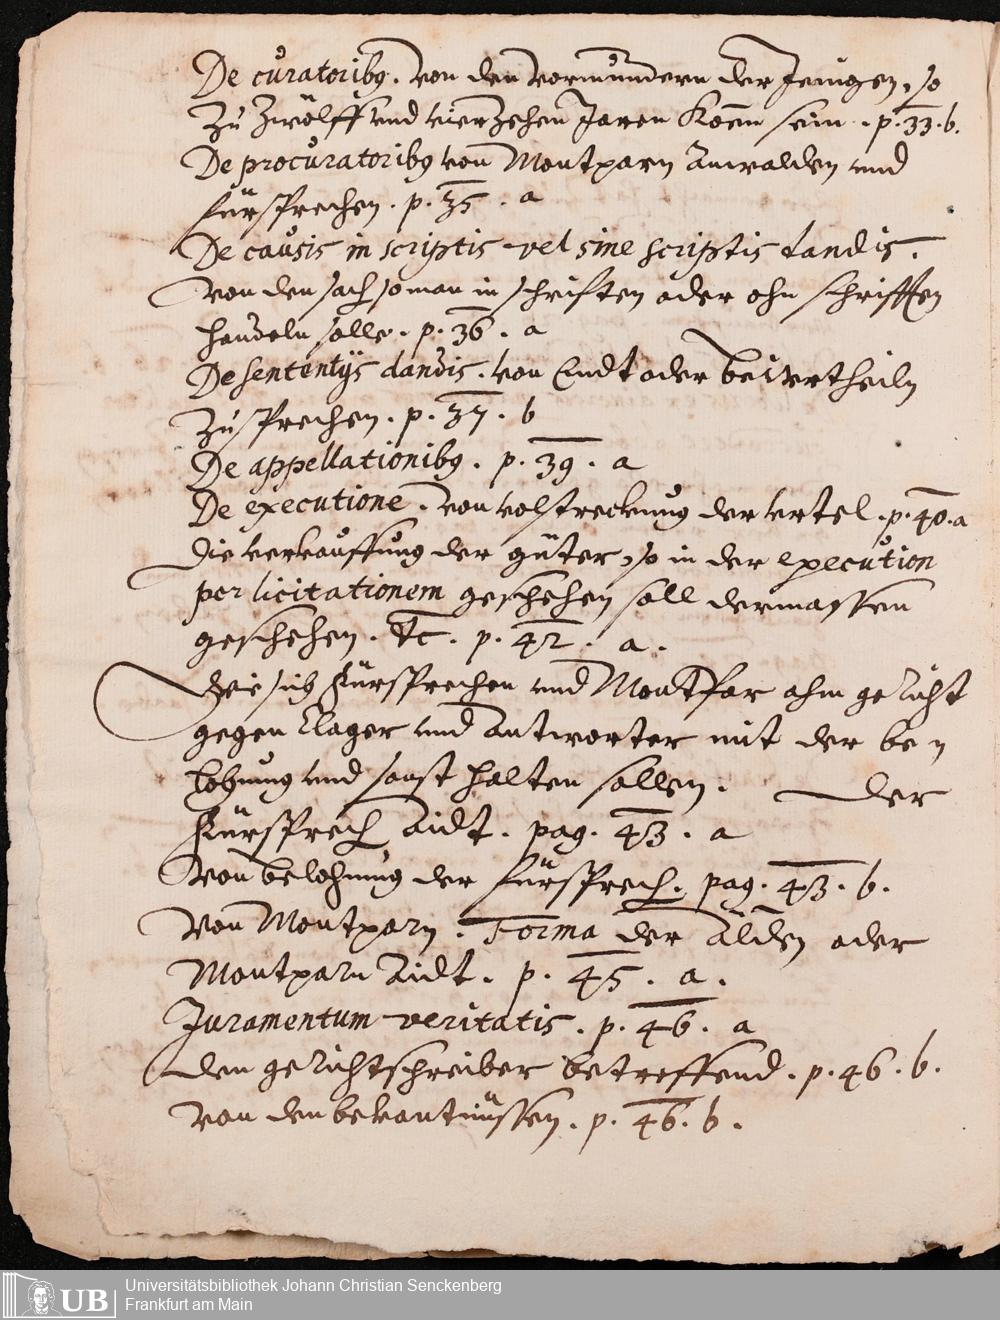 De curatoribus. von den vormundern der Jenigen, so
zu zwölff und vierzehen Jaren komen sein. p. 33. b.
De procuratoribus von Montparn Anwalden und
fürsprechen. p. 35. a
De causis in scriptis vel sine scriptis tandis.
von den sach so man in schriften oder ohn schrifften
handeln solle. p. 36. a
De sententijs dandis. von Endt oder beiurtheiln
zu sprechen. p. 37. b
De appellationibus. p. 39. a
De executione. von volstreckung der urtel. p. 40. a
Die verkauffung der güter, so in der execution
per licitationem geschehen soll dermassen
geschehen. etc. p. 42. a.
Wie sich Fürsprechen und Montpar ahm gericht
gegen Clager und Antworter mit der be
lohnung und sonst halten sollen. Der
Fürsprech Aidt. pag. 43. a
Von belohnung der fürsprech. pag. 43. b.
Von Montparn. Forma der oder
Montparn Aidt. p. 45. a.
Juramentum veritatis. p. 46. a
Den gerichtschreiber betreffend. p. 46. b.
Von den bekantnüssen. p. 46. b.
UB
Universitätsbibliothek Johann Christian Senckenberg
Frankfurt am Main